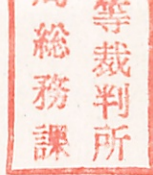 等裁判所
総務課